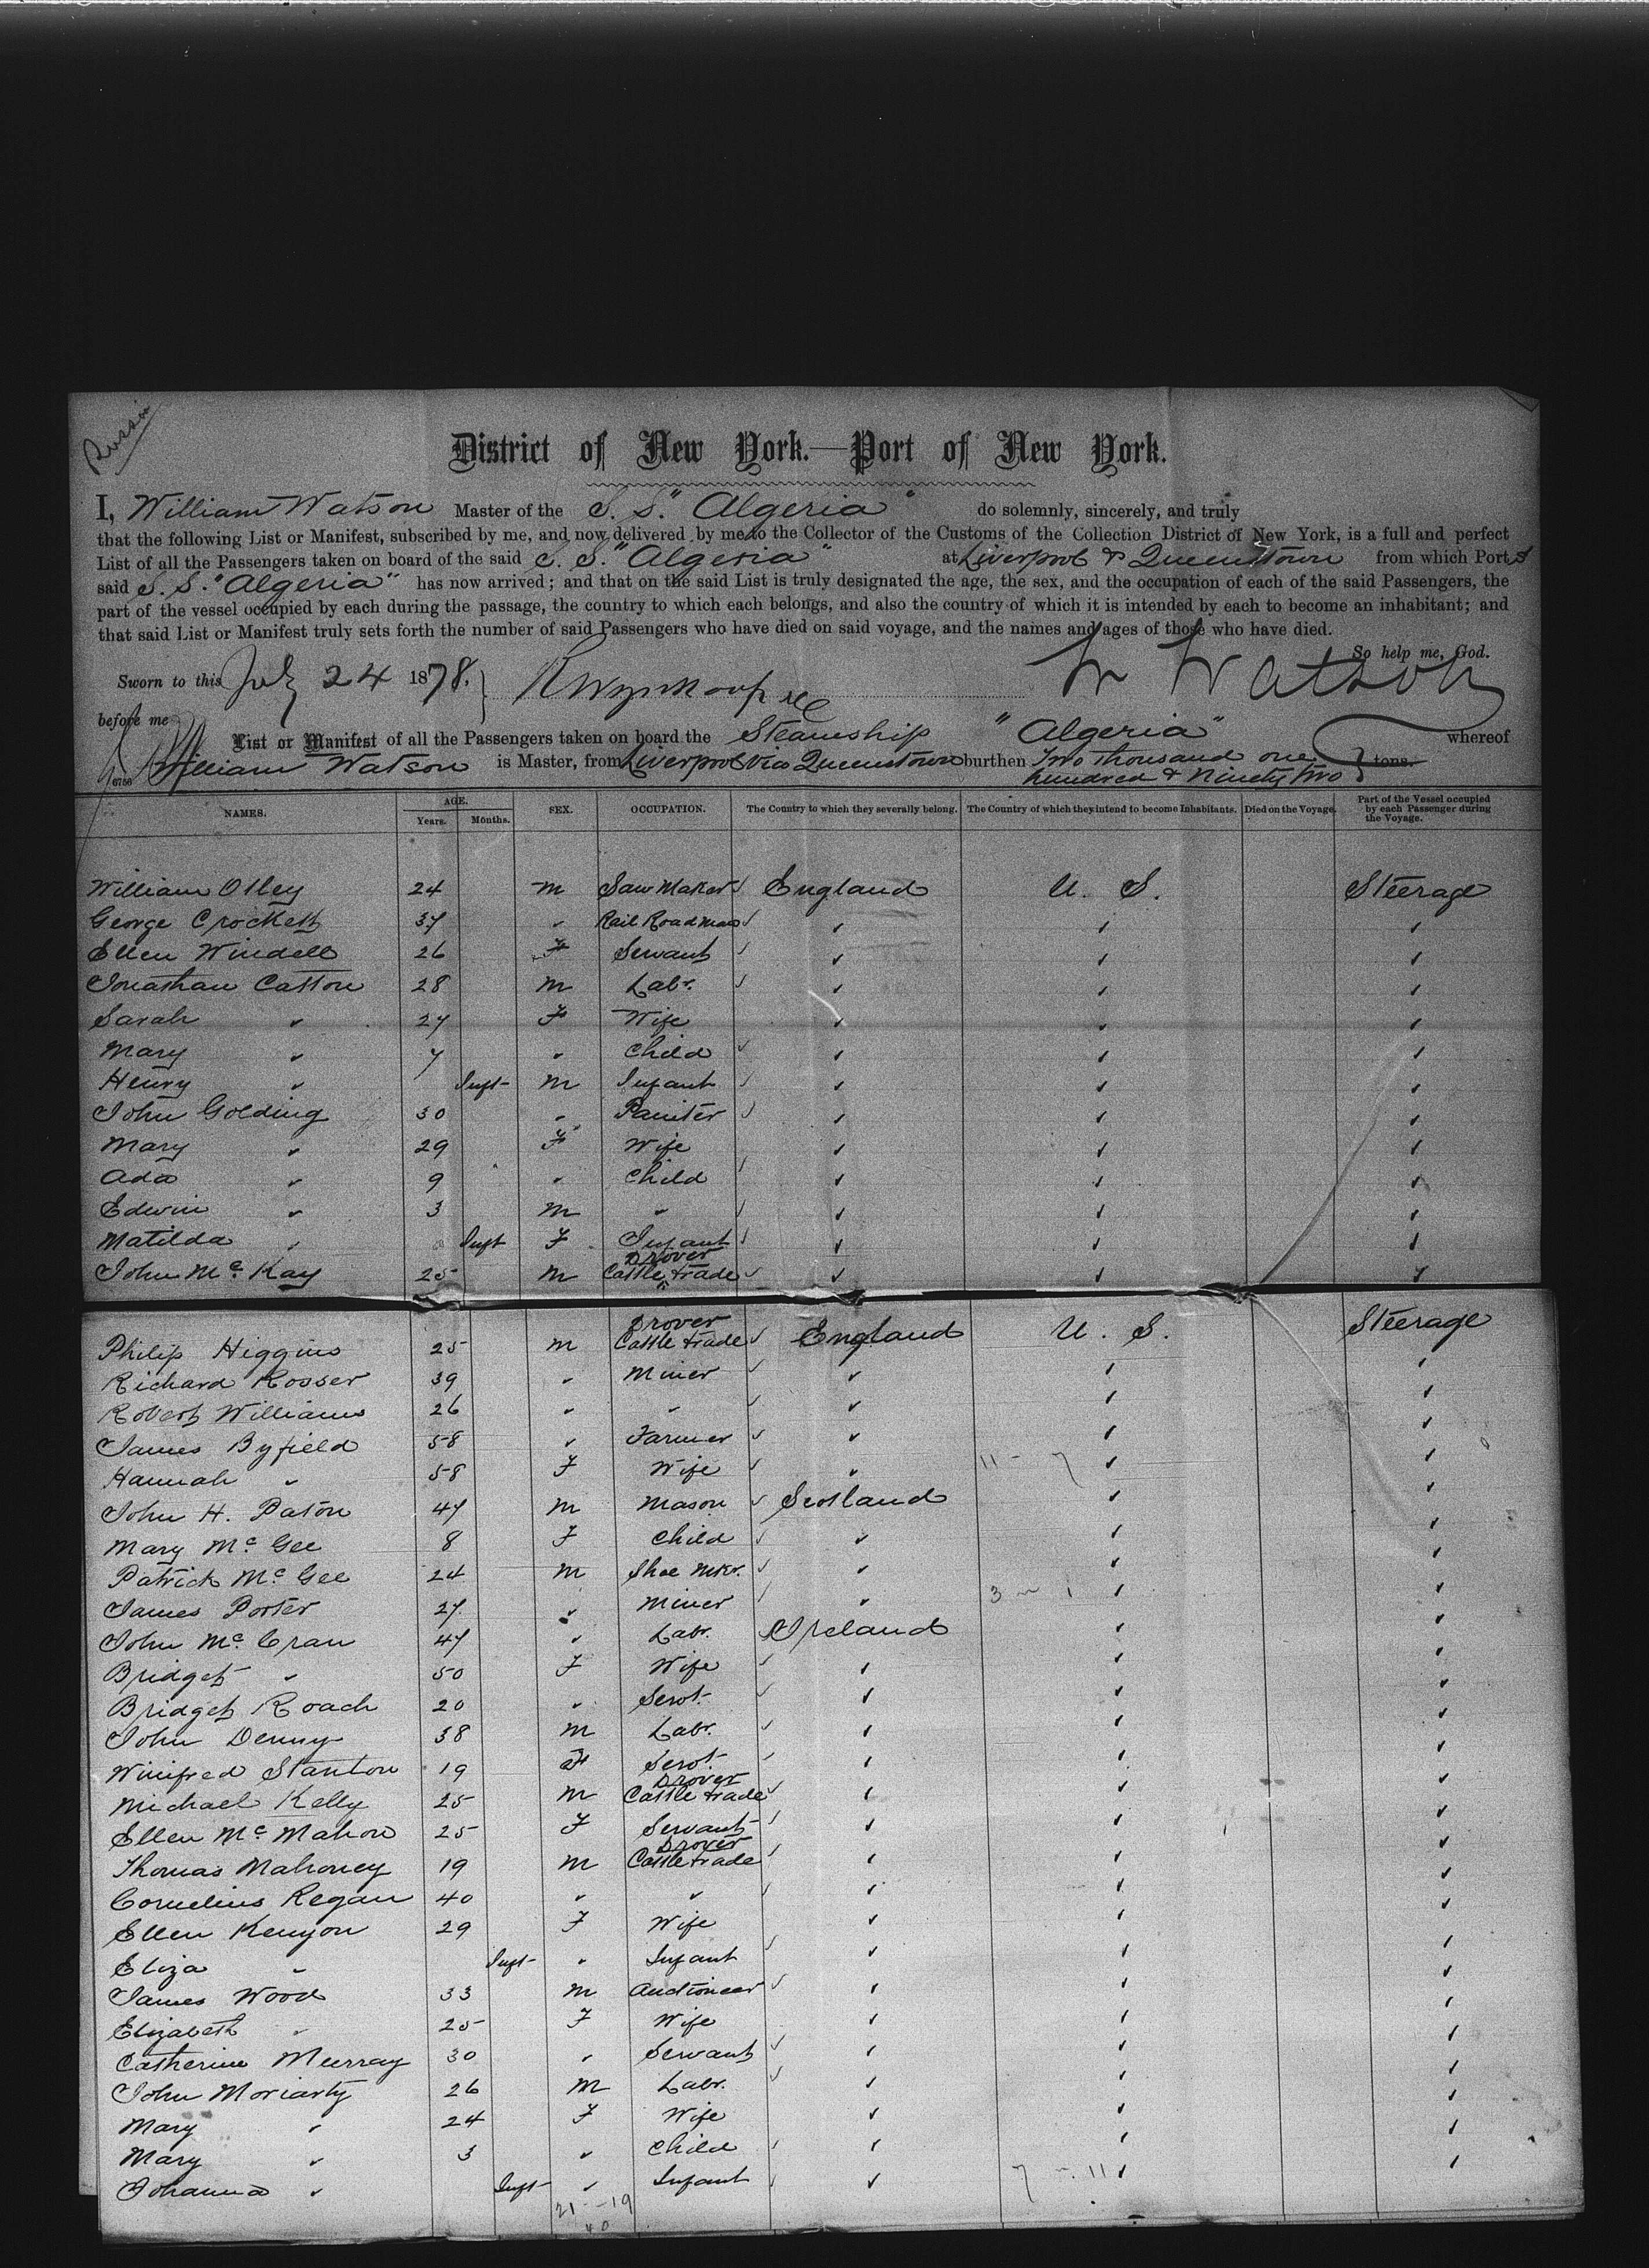 Russia
District of New York.—Port of New York.
I, William Watson Master of the S. S. "Algeria" do solemnly, sincerely, and truly
that the following List or Manifest, subscribed by me, and now delivered by me to the Collector of the Customs of the Collection District of New York, is a full and perfect
List of all the Passengers taken on board of the said S. S. "Algeria" at Liverpool & Queenstown from which Port s
said S. S. "Algeria" has now arrived; and that on the said List is truly designated the age, the sex, and the occupation of each of the said Passengers, the
part of the vessel occupied by each during the passage, the country to which each belongs, and also the country of which it is intended by each to become an inhabitant; and
that said List or Manifest truly sets forth the number of said Passengers who have died on said voyage, and the names and ages of those who have died.
So help me, God.
Sworn to this July 24 1878. W Watson
before me
List or Manifest of all the Passengers taken on board the Steamship "Algeria" whereof
William Watson is Master, from Liverpool via Queenstown burthen Two thousand one hundred & Ninety two tons.
NAMES. AGE. Years. Months. SEX. OCCUPATION. The Country to which they severally belong. The Country of which they intend to become Inhabitants. Died on the Voyage. Part of the Vessel occupied by each Passenger during the Voyage.
William Olley 24 M Saw Maker ✓ England U. S. Steerage
George Crockett 37 " Rail Road Man ✓ " " "
Ellen Windell 26 F Servant ✓ " " "
Jonathan Catton 28 M Labr. ✓ " " "
Sarah " 27 F Wife " " "
Mary " 7 " Child ✓ " " "
Henry " Inft M Infant ✓ " " "
John Golding 30 " Painter ✓ " " "
Mary " 29 F Wife " " "
Ada " 9 " Child ✓ " " "
Edwin " 3 M " ✓ " " "
Matilda " Inft F Infant ✓ " " "
John McKay 25 M Drover Cattle trade ✓ " " "
Philip Higgins 25 M Drover Cattle trade ✓ England U. S. Steerage
Richard Rosser 39 " Miner ✓ " " "
Robert Williams 26 " " ✓ " " "
James Byfield 58 " Farmer ✓ " " "
Hannah " 58 F Wife ✓ " 11 - 7 " "
John H. Paton 47 M Mason ✓ Scotland " "
Mary McGee 8 F Child ✓ " " "
Patrick McGee 24 M Shoe Mkr. ✓ " " "
James Porter 27 " Miner ✓ " 3 - 1 " "
John McCran 47 " Labr. ✓ Ireland " "
Bridget " 50 F Wife ✓ " " "
Bridget Roach 20 " Servt. ✓ " " "
John Denny 38 M Labr. ✓ " " "
Winifred Stanton 19 F Servt. ✓ " " "
Michael Kelly 25 M Drover Cattle trade ✓ " " "
Ellen McMahon 25 F Servant ✓ " " "
Thomas Mahoney 19 M Drover Cattle trade ✓ " " "
Cornelius Regan 40 " " ✓ " " "
Ellen Kenyon 29 F Wife " " "
Eliza " Inft " Infant ✓ " " "
James Wood 33 M Auctioneer ✓ " " "
Elizabeth " 25 F Wife " " "
Catherine Murray 30 " Servant ✓ " " "
John Moriarty 26 M Labr. ✓ " " "
Mary " 24 F Wife " " "
Mary " 3 " Child ✓ " " "
Johanna " Inft " Infant ✓ " 7 - 11 " "
21 - 19
40